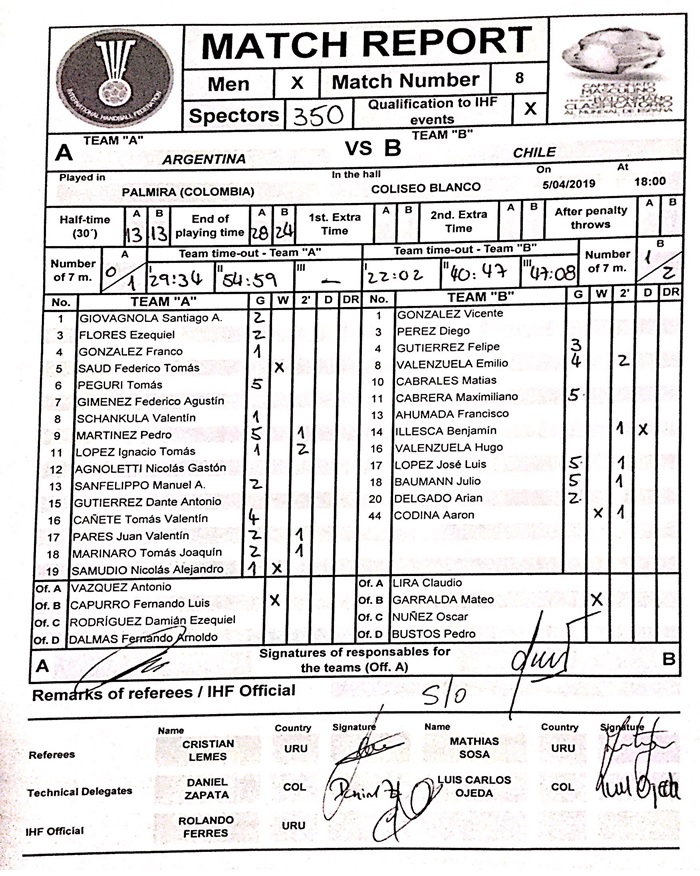 INTERNATIONAL HANDBALL FEDERATION
MATCH REPORT
Men X Match Number 8
Spectors 350 Qualification to IHF events X
CAMPEONATO
MASCULINO
BALONMANO
CLASIFICATORIO
AL MUNDIAL DE ESPAÑA
TEAM "A" TEAM "B"
A ARGENTINA VS B CHILE
Played in In the hall On At
PALMIRA (COLOMBIA) COLISEO BLANCO 5/04/2019 18:00
Half-time (30´) A 13 B 13 End of playing time A 28 B 24 1st. Extra Time A B 2nd. Extra Time A B After penalty throws A B
Number of 7 m. A 0/1 Team time-out - Team "A" I 29:34 II 54:59 III – Team time-out - Team "B" I 22:02 II 40:47 III 47:08 Number of 7 m. B 1/2
No. TEAM "A" G W 2' D DR No. TEAM "B" G W 2' D DR
1 GIOVAGNOLA Santiago A. 2 1 GONZALEZ Vicente
3 FLORES Ezequiel 2 3 PEREZ Diego
4 GONZALEZ Franco 1 4 GUTIERREZ Felipe 3
5 SAUD Federico Tomás X 8 VALENZUELA Emilio 4 2
6 PEGURI Tomás 5 10 CABRALES Matias
7 GIMENEZ Federico Agustín 11 CABRERA Maximiliano 5
8 SCHANKULA Valentín 1 13 AHUMADA Francisco
9 MARTINEZ Pedro 5 1 14 ILLESCA Benjamín 1 X
11 LOPEZ Ignacio Tomás 1 2 16 VALENZUELA Hugo
12 AGNOLETTI Nicolás Gastón 17 LOPEZ José Luis 5 1
13 SANFELIPPO Manuel A. 2 18 BAUMANN Julio 5 1
15 GUTIERREZ Dante Antonio 20 DELGADO Arian 2
16 CAÑETE Tomás Valentín 4 44 CODINA Aaron X 1
17 PARES Juan Valentín 2 1
18 MARINARO Tomás Joaquín 2 1
19 SAMUDIO Nicolás Alejandro 1 X
Of. A VAZQUEZ Antonio Of. A LIRA Claudio
Of. B CAPURRO Fernando Luis X Of. B GARRALDA Mateo X
Of. C RODRÍGUEZ Damián Ezequiel Of. C NUÑEZ Oscar
Of. D DALMAS Fernando Arnoldo Of. D BUSTOS Pedro
A Signatures of responsables for the teams (Off. A) B
Remarks of referees / IHF Official S/O
Name Country Signature Name Country Signature
Referees CRISTIAN LEMES URU MATHIAS SOSA URU
Technical Delegates DANIEL ZAPATA COL LUIS CARLOS OJEDA COL Luis Ojeda
IHF Official ROLANDO FERRES URU